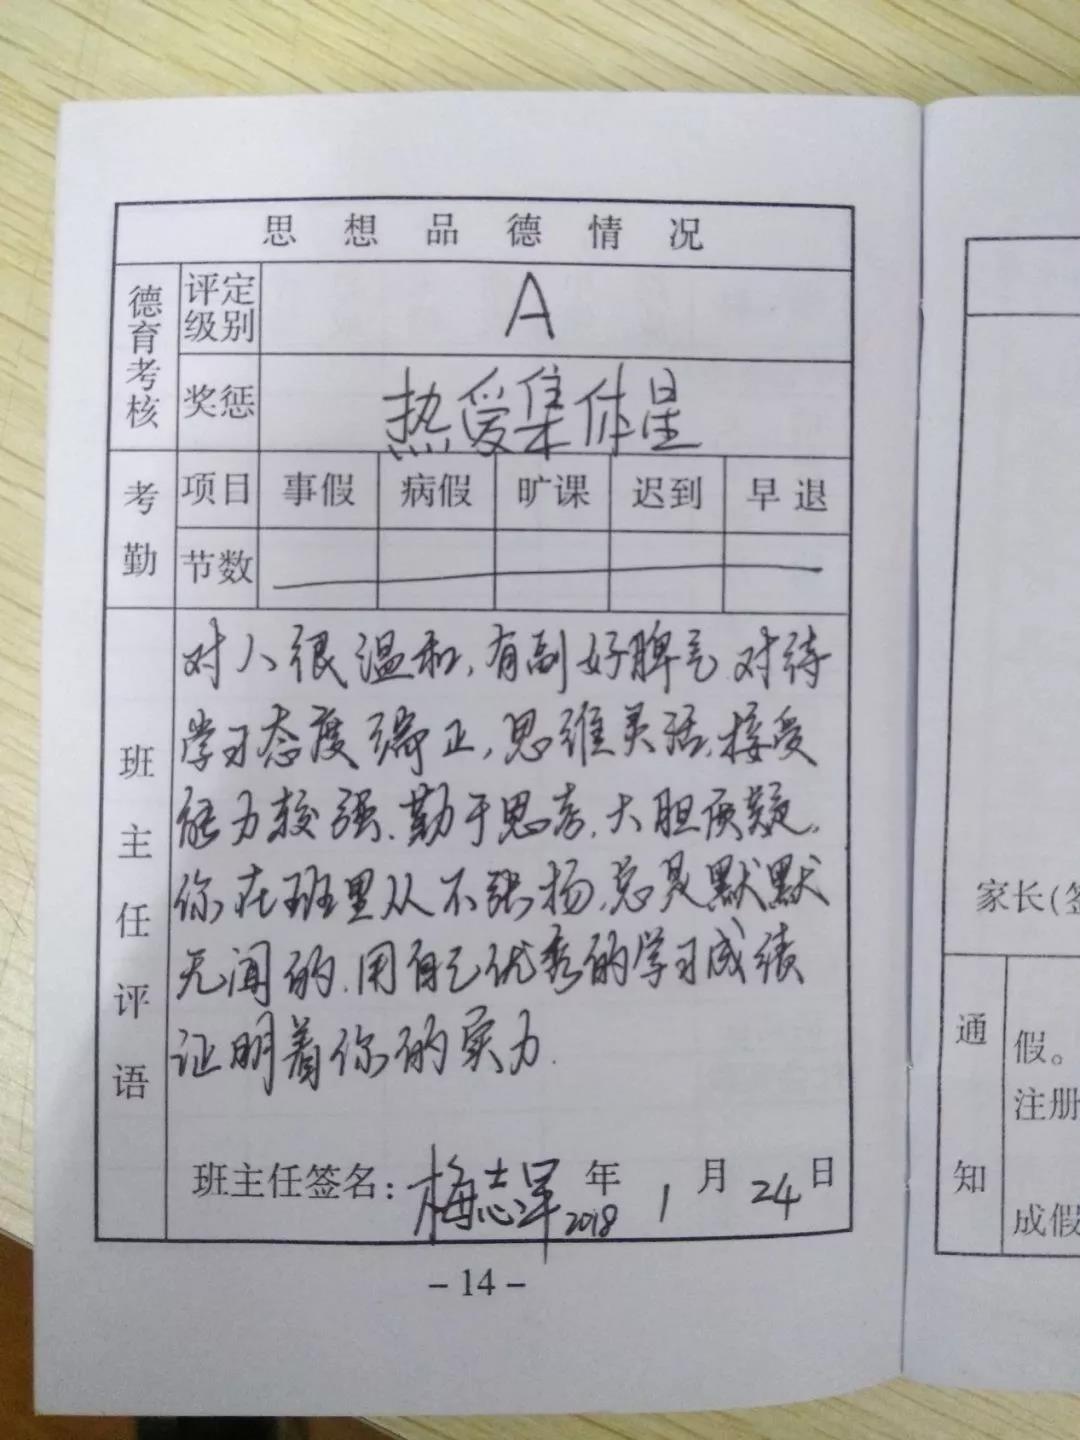 思想品德情况
德育考核 评定级别 A
奖惩 热爱集体星
考勤 项目 事假 病假 旷课 迟到 早退
节数
班主任评语
对人很温和,有副好脾气.对待
学习态度端正,思维灵活,接受
能力较强.勤于思考,大胆质疑.
你在班里从不张扬,总是默默
无闻的.用自己优秀的学习成绩
证明着你的实力.
班主任签名: 梅志军 2018年 1月 24日
- 14 -
家长(签
通知
假。
注册
成假